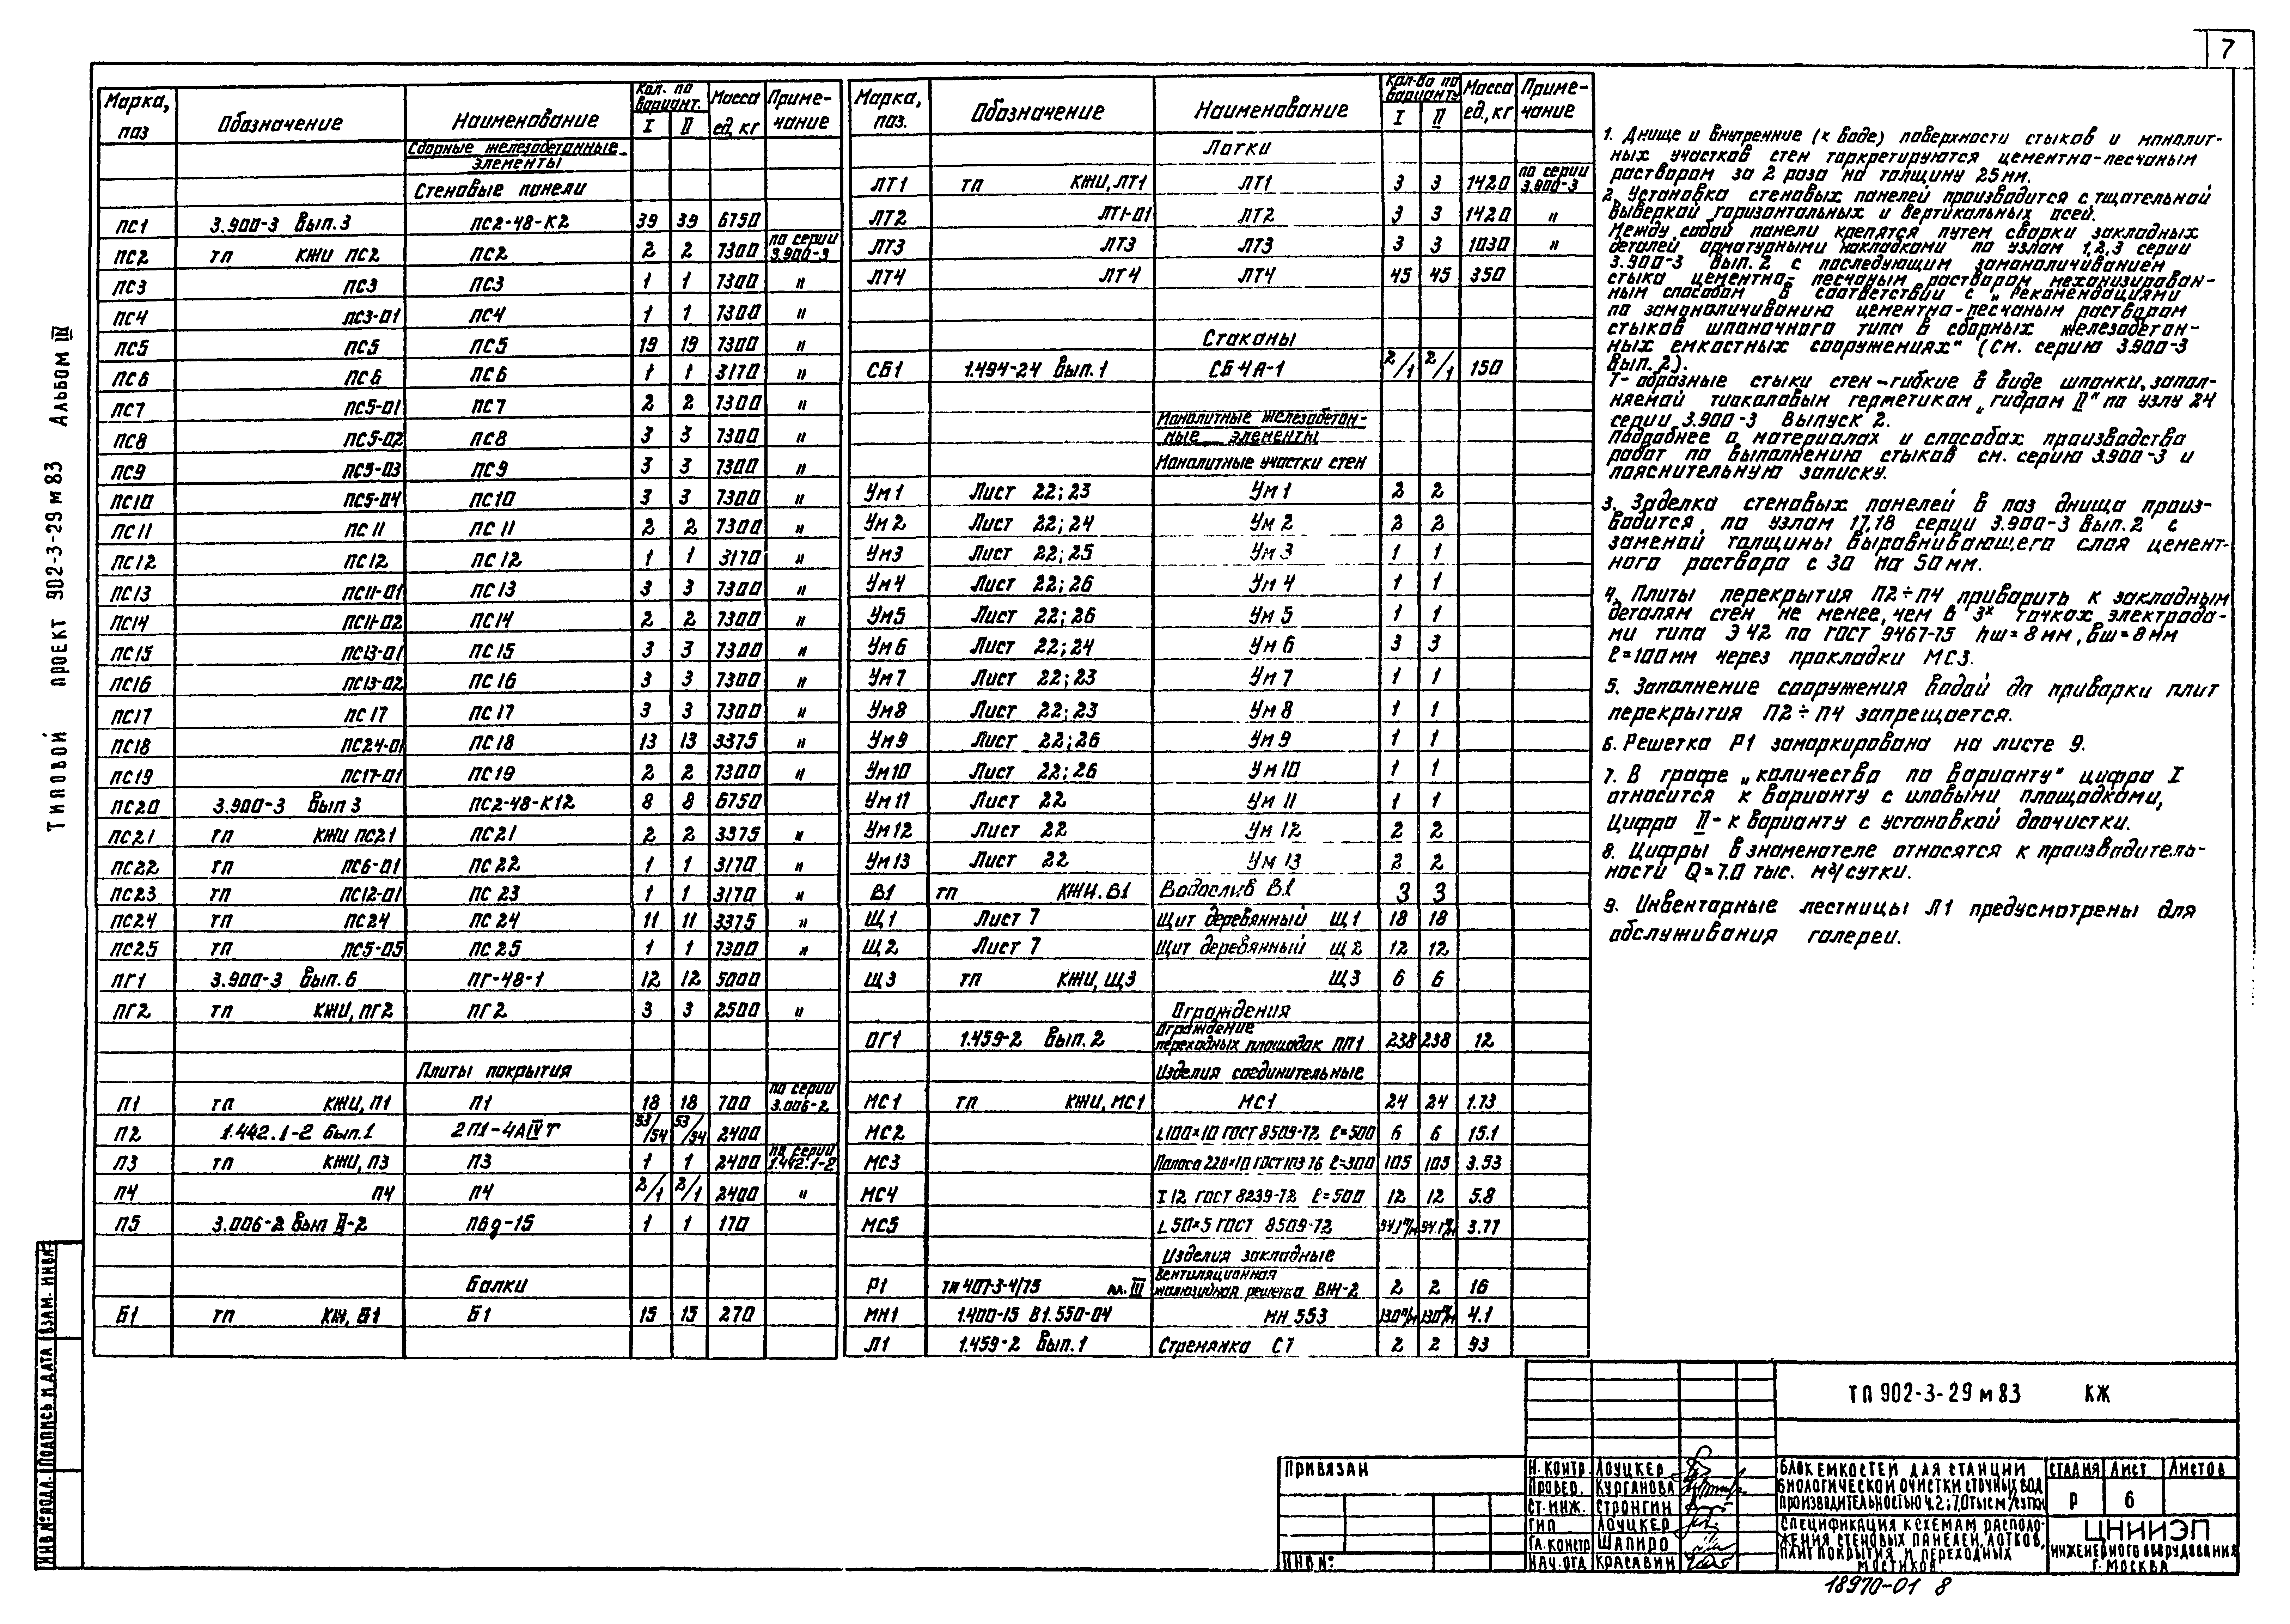 7
ТИПОВОЙ ПРОЕКТ 902-3-29м83 Альбом III
Марка, поз | Обозначение | Наименование | Кол. по вариант. I | II | Масса ед, кг | Примечание
Сборные железобетонные элементы
Стеновые панели
ПС1 | 3.900-3 Вып.3 | ПС2-48-К2 | 39 | 39 | 6750
ПС2 | ТП КЖИ ПС2 | ПС2 | 2 | 2 | 7300 | по серии 3.900-3
ПС3 | ПС3 | ПС3 | 1 | 1 | 7300 | "
ПС4 | ПС3-01 | ПС4 | 1 | 1 | 7300 | "
ПС5 | ПС5 | ПС5 | 19 | 19 | 7300 | "
ПС6 | ПС6 | ПС6 | 1 | 1 | 3170 | "
ПС7 | ПС5-01 | ПС7 | 2 | 2 | 7300 | "
ПС8 | ПС5-02 | ПС8 | 3 | 3 | 7300 | "
ПС9 | ПС5-03 | ПС9 | 3 | 3 | 7300 | "
ПС10 | ПС5-04 | ПС10 | 3 | 3 | 7300 | "
ПС11 | ПС11 | ПС11 | 2 | 2 | 7300 | "
ПС12 | ПС12 | ПС12 | 1 | 1 | 3170 | "
ПС13 | ПС11-01 | ПС13 | 3 | 3 | 7300 | "
ПС14 | ПС11-02 | ПС14 | 2 | 2 | 7300 | "
ПС15 | ПС13-01 | ПС15 | 3 | 3 | 7300 | "
ПС16 | ПС13-02 | ПС16 | 3 | 3 | 7300 | "
ПС17 | ПС17 | ПС17 | 3 | 3 | 7300 | "
ПС18 | ПС24-01 | ПС18 | 13 | 13 | 3375 | "
ПС19 | ПС17-01 | ПС19 | 2 | 2 | 7300 | "
ПС20 | 3.900-3 Вып 3 | ПС2-48-К12 | 8 | 8 | 6750
ПС21 | ТП КЖИ ПС21 | ПС21 | 2 | 2 | 3375 | "
ПС22 | ТП ПС6-01 | ПС22 | 1 | 1 | 3170 | "
ПС23 | ТП ПС12-01 | ПС23 | 1 | 1 | 3170 | "
ПС24 | ТП ПС24 | ПС24 | 11 | 11 | 3375 | "
ПС25 | ТП ПС5-05 | ПС25 | 1 | 1 | 7300 | "
ПГ1 | 3.900-3 Вып.6 | ПГ-48-1 | 12 | 12 | 5000
ПГ2 | ТП КЖИ, ПГ2 | ПГ2 | 3 | 3 | 2500 | "
Плиты покрытия
П1 | ТП КЖИ, П1 | П1 | 18 | 18 | 700 | по серии 3.006-2
П2 | 1.442.1-2 Вып.1 | 2П1-4АIVТ | 53/54 | 53/54 | 2400
П3 | ТП КЖИ, П3 | П3 | 1 | 1 | 2400 | по серии 1.442.1-2
П4 | П4 | П4 | 2/1 | 2/1 | 2400 | "
П5 | 3.006-2 Вып II-2 | ПВд-15 | 1 | 1 | 170
Балки
Б1 | ТП КЖ, Б1 | Б1 | 15 | 15 | 270
Марка, поз. | Обозначение | Наименование | Кол-во по варианту I | II | Масса ед, кг | Примечание
Лотки
ЛТ1 | ТП КЖИ, ЛТ1 | ЛТ1 | 3 | 3 | 1420 | по серии 3.900-3
ЛТ2 | ЛТ1-01 | ЛТ2 | 3 | 3 | 1420 | "
ЛТ3 | ЛТ3 | ЛТ3 | 3 | 3 | 1030 | "
ЛТ4 | ЛТ4 | ЛТ4 | 45 | 45 | 350
Стаканы
СБ1 | 1.494-24 Вып.1 | СБ4А-1 | 2/1 | 2/1 | 150
Монолитные железобетонные элементы
Монолитные участки стен
Ум1 | Лист 22;23 | Ум1 | 2 | 2
Ум2 | Лист 22;24 | Ум2 | 2 | 2
Ум3 | Лист 22;25 | Ум3 | 1 | 1
Ум4 | Лист 22;26 | Ум4 | 1 | 1
Ум5 | Лист 22;26 | Ум5 | 1 | 1
Ум6 | Лист 22;24 | Ум6 | 3 | 3
Ум7 | Лист 22;23 | Ум7 | 1 | 1
Ум8 | Лист 22;23 | Ум8 | 1 | 1
Ум9 | Лист 22;26 | Ум9 | 1 | 1
Ум10 | Лист 22;26 | Ум10 | 1 | 1
Ум11 | Лист 22 | Ум11 | 1 | 1
Ум12 | Лист 22 | Ум12 | 2 | 2
Ум13 | Лист 22 | Ум13 | 2 | 2
В1 | ТП КЖИ.В1 | Водослив В1 | 3 | 3
Щ1 | Лист 7 | Щит деревянный Щ1 | 18 | 18
Щ2 | Лист 7 | Щит деревянный Щ2 | 12 | 12
Щ3 | ТП КЖИ, Щ3 | Щ3 | 6 | 6
Ограждения
ОГ1 | 1.459-2 Вып.2 | Ограждение переходных площадок ПП1 | 238 | 238 | 12
Изделия соединительные
МС1 | ТП КЖИ, МС1 | МС1 | 24 | 24 | 1.73
МС2 | L100×10 ГОСТ 8509-72 ℓ=500 | 6 | 6 | 15.1
МС3 | Полоса 220×10 ГОСТ 103-76 ℓ=300 | 105 | 105 | 3.53
МС4 | I 12 ГОСТ 8239-72 ℓ=500 | 12 | 12 | 5.8
МС5 | L 50×5 ГОСТ 8509-72 | 94.1 п/м | 94.1 п/м | 3.77
Изделия закладные
Р1 | ТП 407-3-4/75 ал.III | Вентиляционная жалюзийная решетка ВЖ-2 | 2 | 2 | 16
МН1 | 1.400-15 В1.550-04 | МН 553 | 130 п/м | 130 п/м | 4.1
Л1 | 1.459-2 Вып.1 | Стремянка С7 | 2 | 2 | 93
1. Днище и внутренние (к воде) поверхности стыков и монолит-
ных участков стен торкретируются цементно-песчаным
раствором за 2 раза на толщину 25мм.
2. Установка стеновых панелей производится с тщательной
выверкой горизонтальных и вертикальных осей.
Между собой панели крепятся путем сварки закладных
деталей арматурными накладками по узлам 1,2,3 серии
3.900-3 Вып.2 с последующим замоноличиванием
стыка цементно-песчаным раствором механизирован-
ным способом в соответствии с „Рекомендациями
по замоноличиванию цементно-песчаным раствором
стыков шпоночного типа в сборных железобетон-
ных емкостных сооружениях" (см. серию 3.900-3
Вып.2).
Т-образные стыки стен-гибкие в виде шпонки, запол-
няемой тиоколовым герметиком „гидром II" по узлу 24
серии 3.900-3 Выпуск 2.
Подробнее о материалах и способах производства
работ по выполнению стыков см. серию 3.900-3 и
пояснительную записку.
3. Заделка стеновых панелей в паз днища произ-
водится по узлам 17,18 серии 3.900-3 Вып.2 с
заменой толщины выравнивающего слоя цемент-
ного раствора с 30 на 50мм.
4. Плиты перекрытия П2÷П4 приварить к закладным
деталям стен не менее, чем в 3х точках электрода-
ми типа Э42 по ГОСТ 9467-75 hш=8мм, bш=8мм
ℓ=100мм через прокладки МС3.
5. Заполнение сооружения водой до приварки плит
перекрытия П2÷П4 запрещается.
6. Решетка Р1 замаркирована на листе 9.
7. В графе „количество по варианту" цифра I
относится к варианту с иловыми площадками,
Цифра II- к варианту с установкой доочистки.
8. Цифры в знаменателе относятся к производитель-
ности Q=7.0 тыс. м³/сутки.
9. Инвентарные лестницы Л1 предусмотрены для
обслуживания галереи.
ИНВ № ПОДЛ. ПОДПИСЬ И ДАТА ВЗАМ. ИНВ №
ПРИВЯЗАН
ИНВ №:
ТП 902-3-29м83 КЖ
Н. КОНТР. ЛОУЦКЕР
ПРОВЕР. КУРГАНОВА
СТ. ИНЖ. СТРОНГИН
ГИП ЛОУЦКЕР
ГЛ. КОНСТР ШАПИРО
НАЧ. ОТД КРАСАВИН
БЛОК ЕМКОСТЕЙ ДЛЯ СТАНЦИИ
БИОЛОГИЧЕСКОЙ ОЧИСТКИ СТОЧНЫХ ВОД
ПРОИЗВОДИТЕЛЬНОСТЬЮ 4.2;7.0 тыс м³/сутки
СПЕЦИФИКАЦИЯ К СХЕМАМ РАСПОЛО-
ЖЕНИЯ СТЕНОВЫХ ПАНЕЛЕЙ, ЛОТКОВ,
ПЛИТ ПОКРЫТИЯ И ПЕРЕХОДНЫХ
МОСТИКОВ
СТАДИЯ ЛИСТ ЛИСТОВ
Р 6
ЦНИИЭП
ИНЖЕНЕРНОГО ОБОРУДОВАНИЯ
Г. МОСКВА
18970-01 8